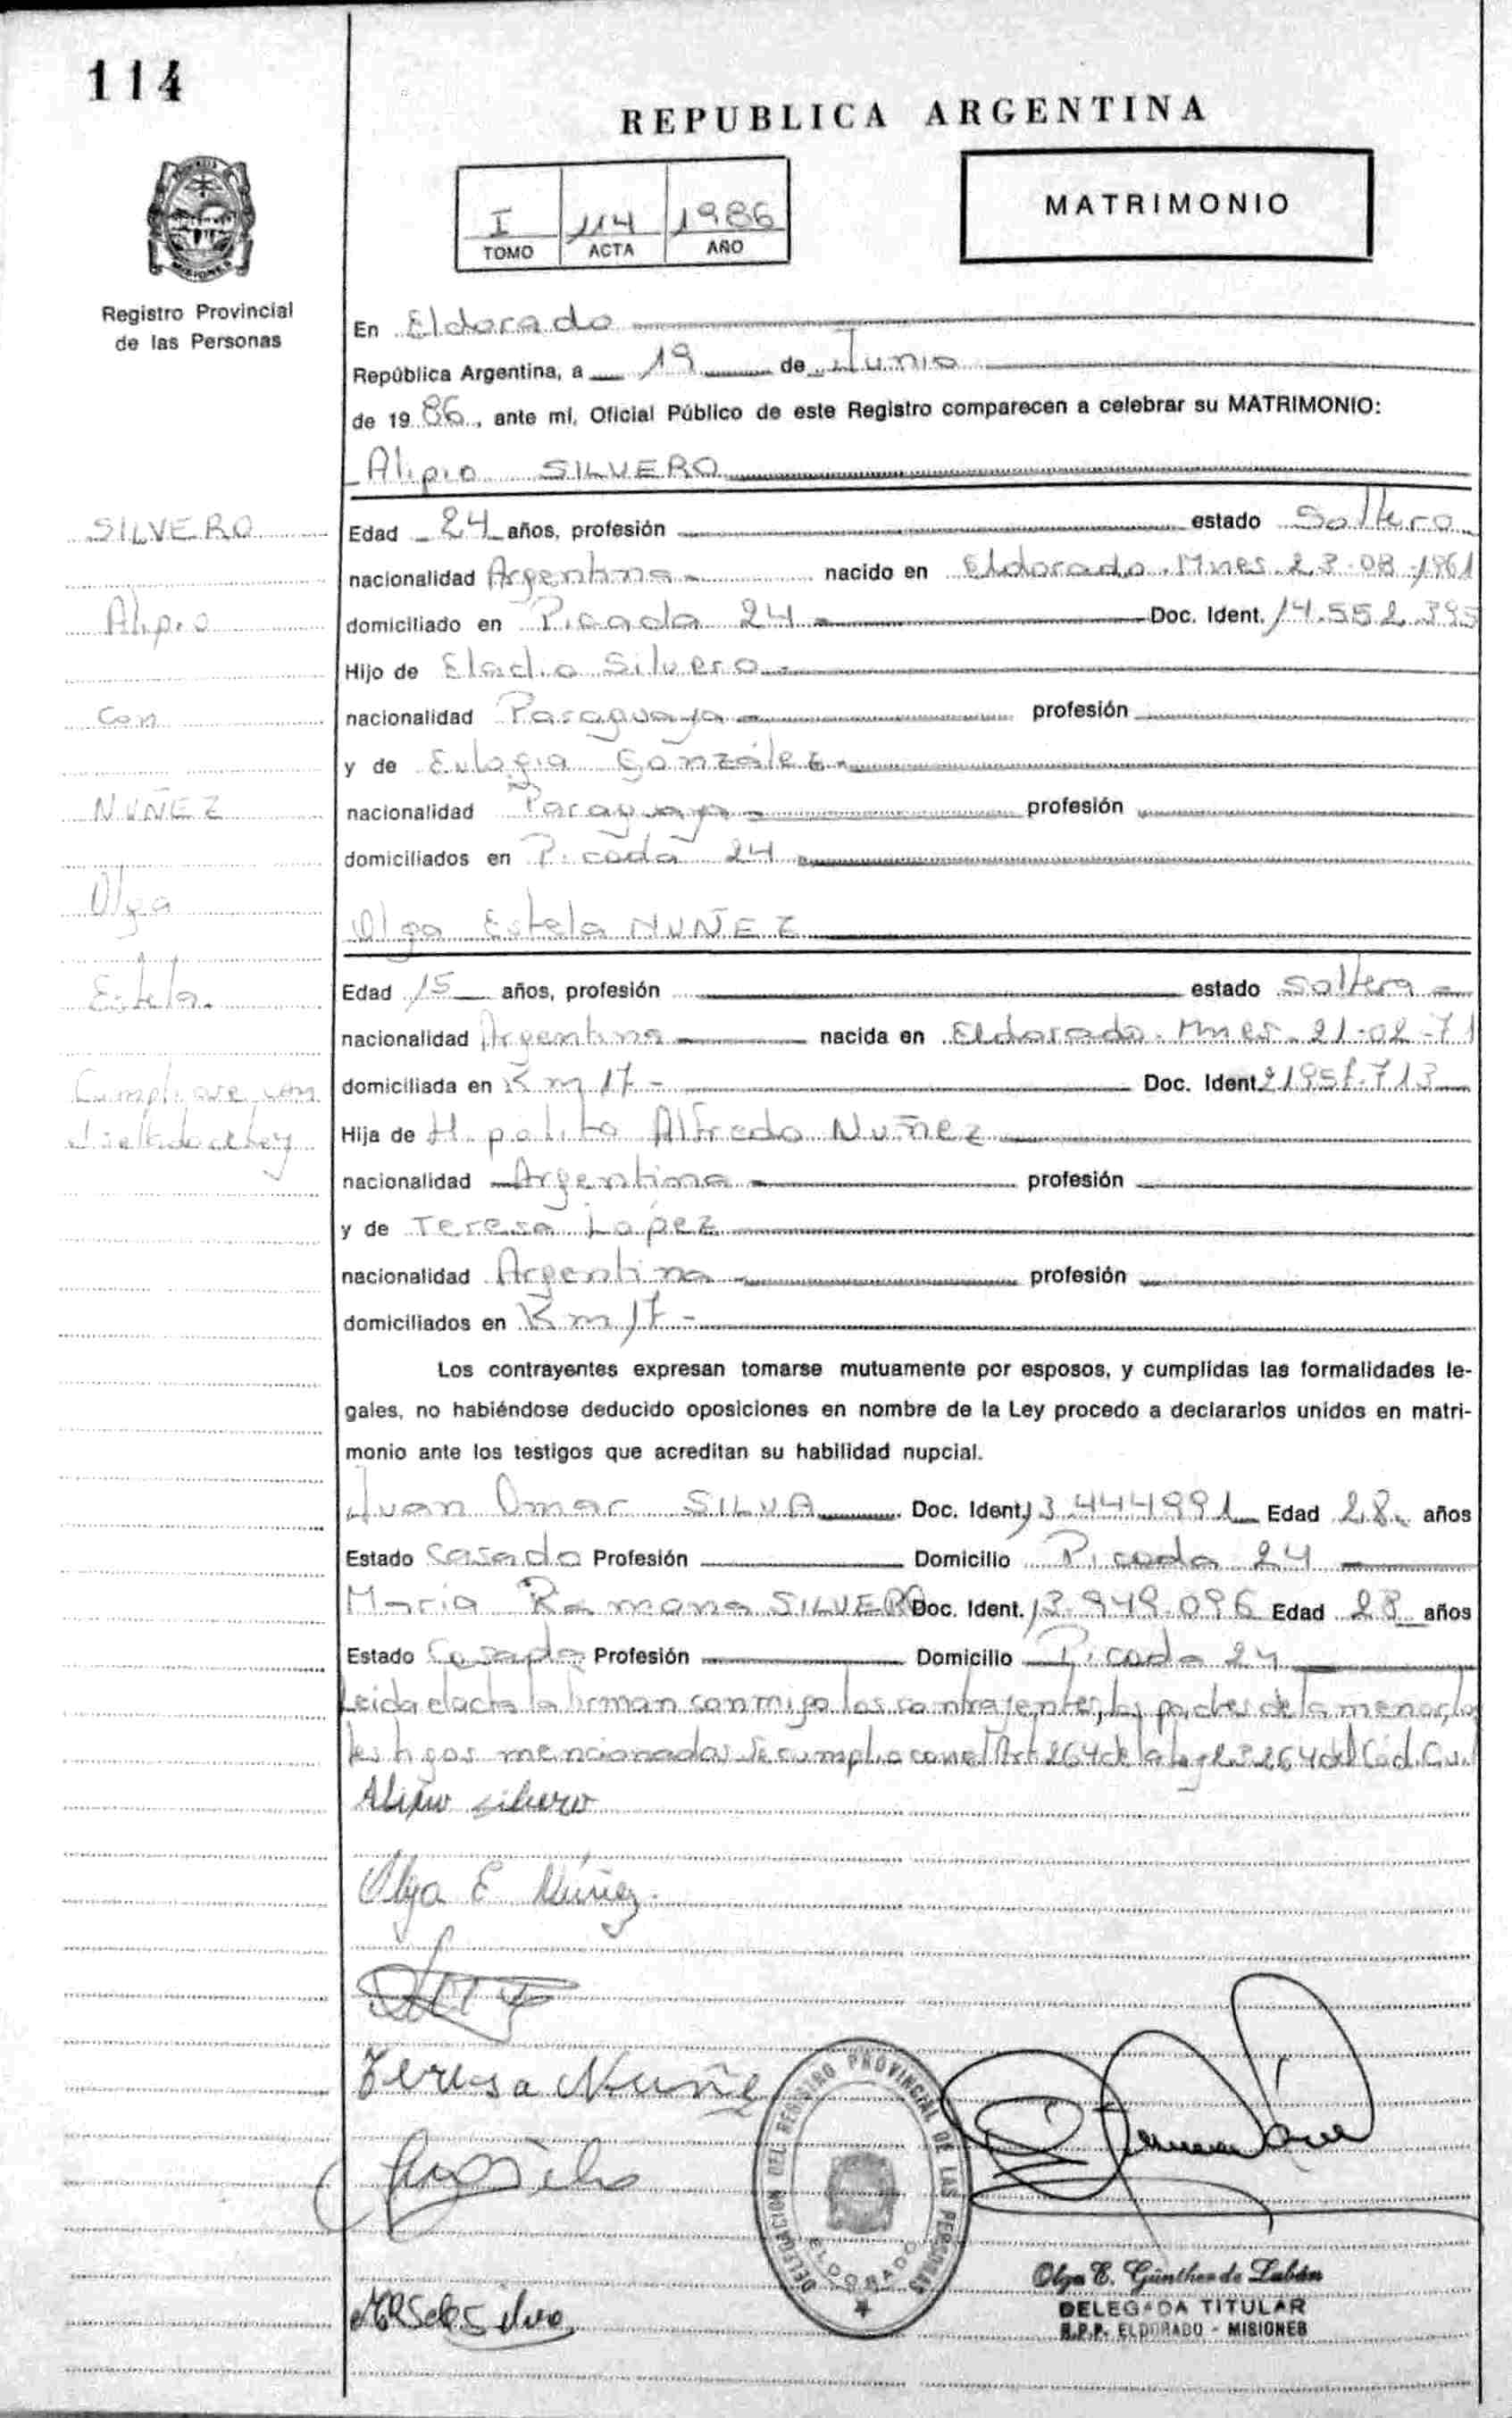 114
REPUBLICA ARGENTINA
I 114 1986
TOMO ACTA AÑO
MATRIMONIO
Registro Provincial
de las Personas
En Eldorado
República Argentina, a 19 de Junio
de 1986, ante mi, Oficial Público de este Registro comparecen a celebrar su MATRIMONIO:
Alipio SILVERO
SILVERO
Alipio
Con
NUÑEZ
Olga
Estela.
Cumplase con
Edad 24 años, profesión estado Soltero
nacionalidad Argentina nacido en Eldorado. Mnes. 23-08-1961
domiciliado en Picada 24 Doc. Ident. 14.552.395
Hijo de Eladio Silvero
nacionalidad Paraguaya profesión
y de Eulogia González
nacionalidad Paraguaya profesión
domiciliados en Picada 24
Olga Estela NUÑEZ
Edad 15 años, profesión estado Soltera
nacionalidad Argentina nacida en Eldorado. Mnes. 21-02-71
domiciliada en Km 17 - Doc. Ident. 21957.713
Hija de Hipolito Alfredo Nuñez
nacionalidad Argentina profesión
y de Teresa López
nacionalidad Argentina profesión
domiciliados en Km 17 -
Los contrayentes expresan tomarse mutuamente por esposos, y cumplidas las formalidades le-
gales, no habiéndose deducido oposiciones en nombre de la Ley procedo a declararlos unidos en matri-
monio ante los testigos que acreditan su habilidad nupcial.
Juan Omar SILVA Doc. Ident. 13.444991 Edad 28 años
Estado Casado Profesión Domicilio Picada 24
Maria Ramona SILVERO Doc. Ident. 13.949.096 Edad 28 años
Estado Casada Profesión Domicilio Picada 24
Leida el acta la firman conmigo los contrayentes, los padres de la menor, los
testigos mencionados. Se cumplio con el Art 264 de la Ley 23264 del Cód. Civil
Alipio Silvero
Olga E Núñez.
Teresa Nuñe
DELEGACION DEL REGISTRO PROVINCIAL DE LAS PERSONAS
ELDORADO
Olga E. Günther de Labán
DELEGADA TITULAR
R.P.P. ELDORADO - MISIONES